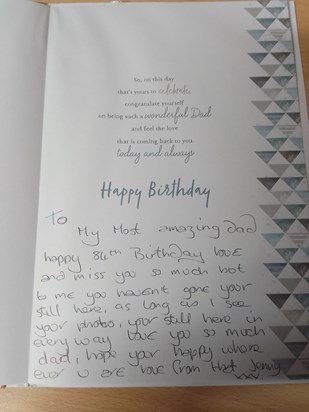 So, on this day
that's yours to celebrate,
congratulate yourself
on being such a wonderful Dad
and feel the love
that is coming back to you
today and always
Happy Birthday
To
My Most amazing dad
happy 84th Birthday love
and miss you so much but
to me you havent gone your
still here, as long as I see
your photos, your still here in
every way love you so much
dad, hope your happy where
ever u are love from